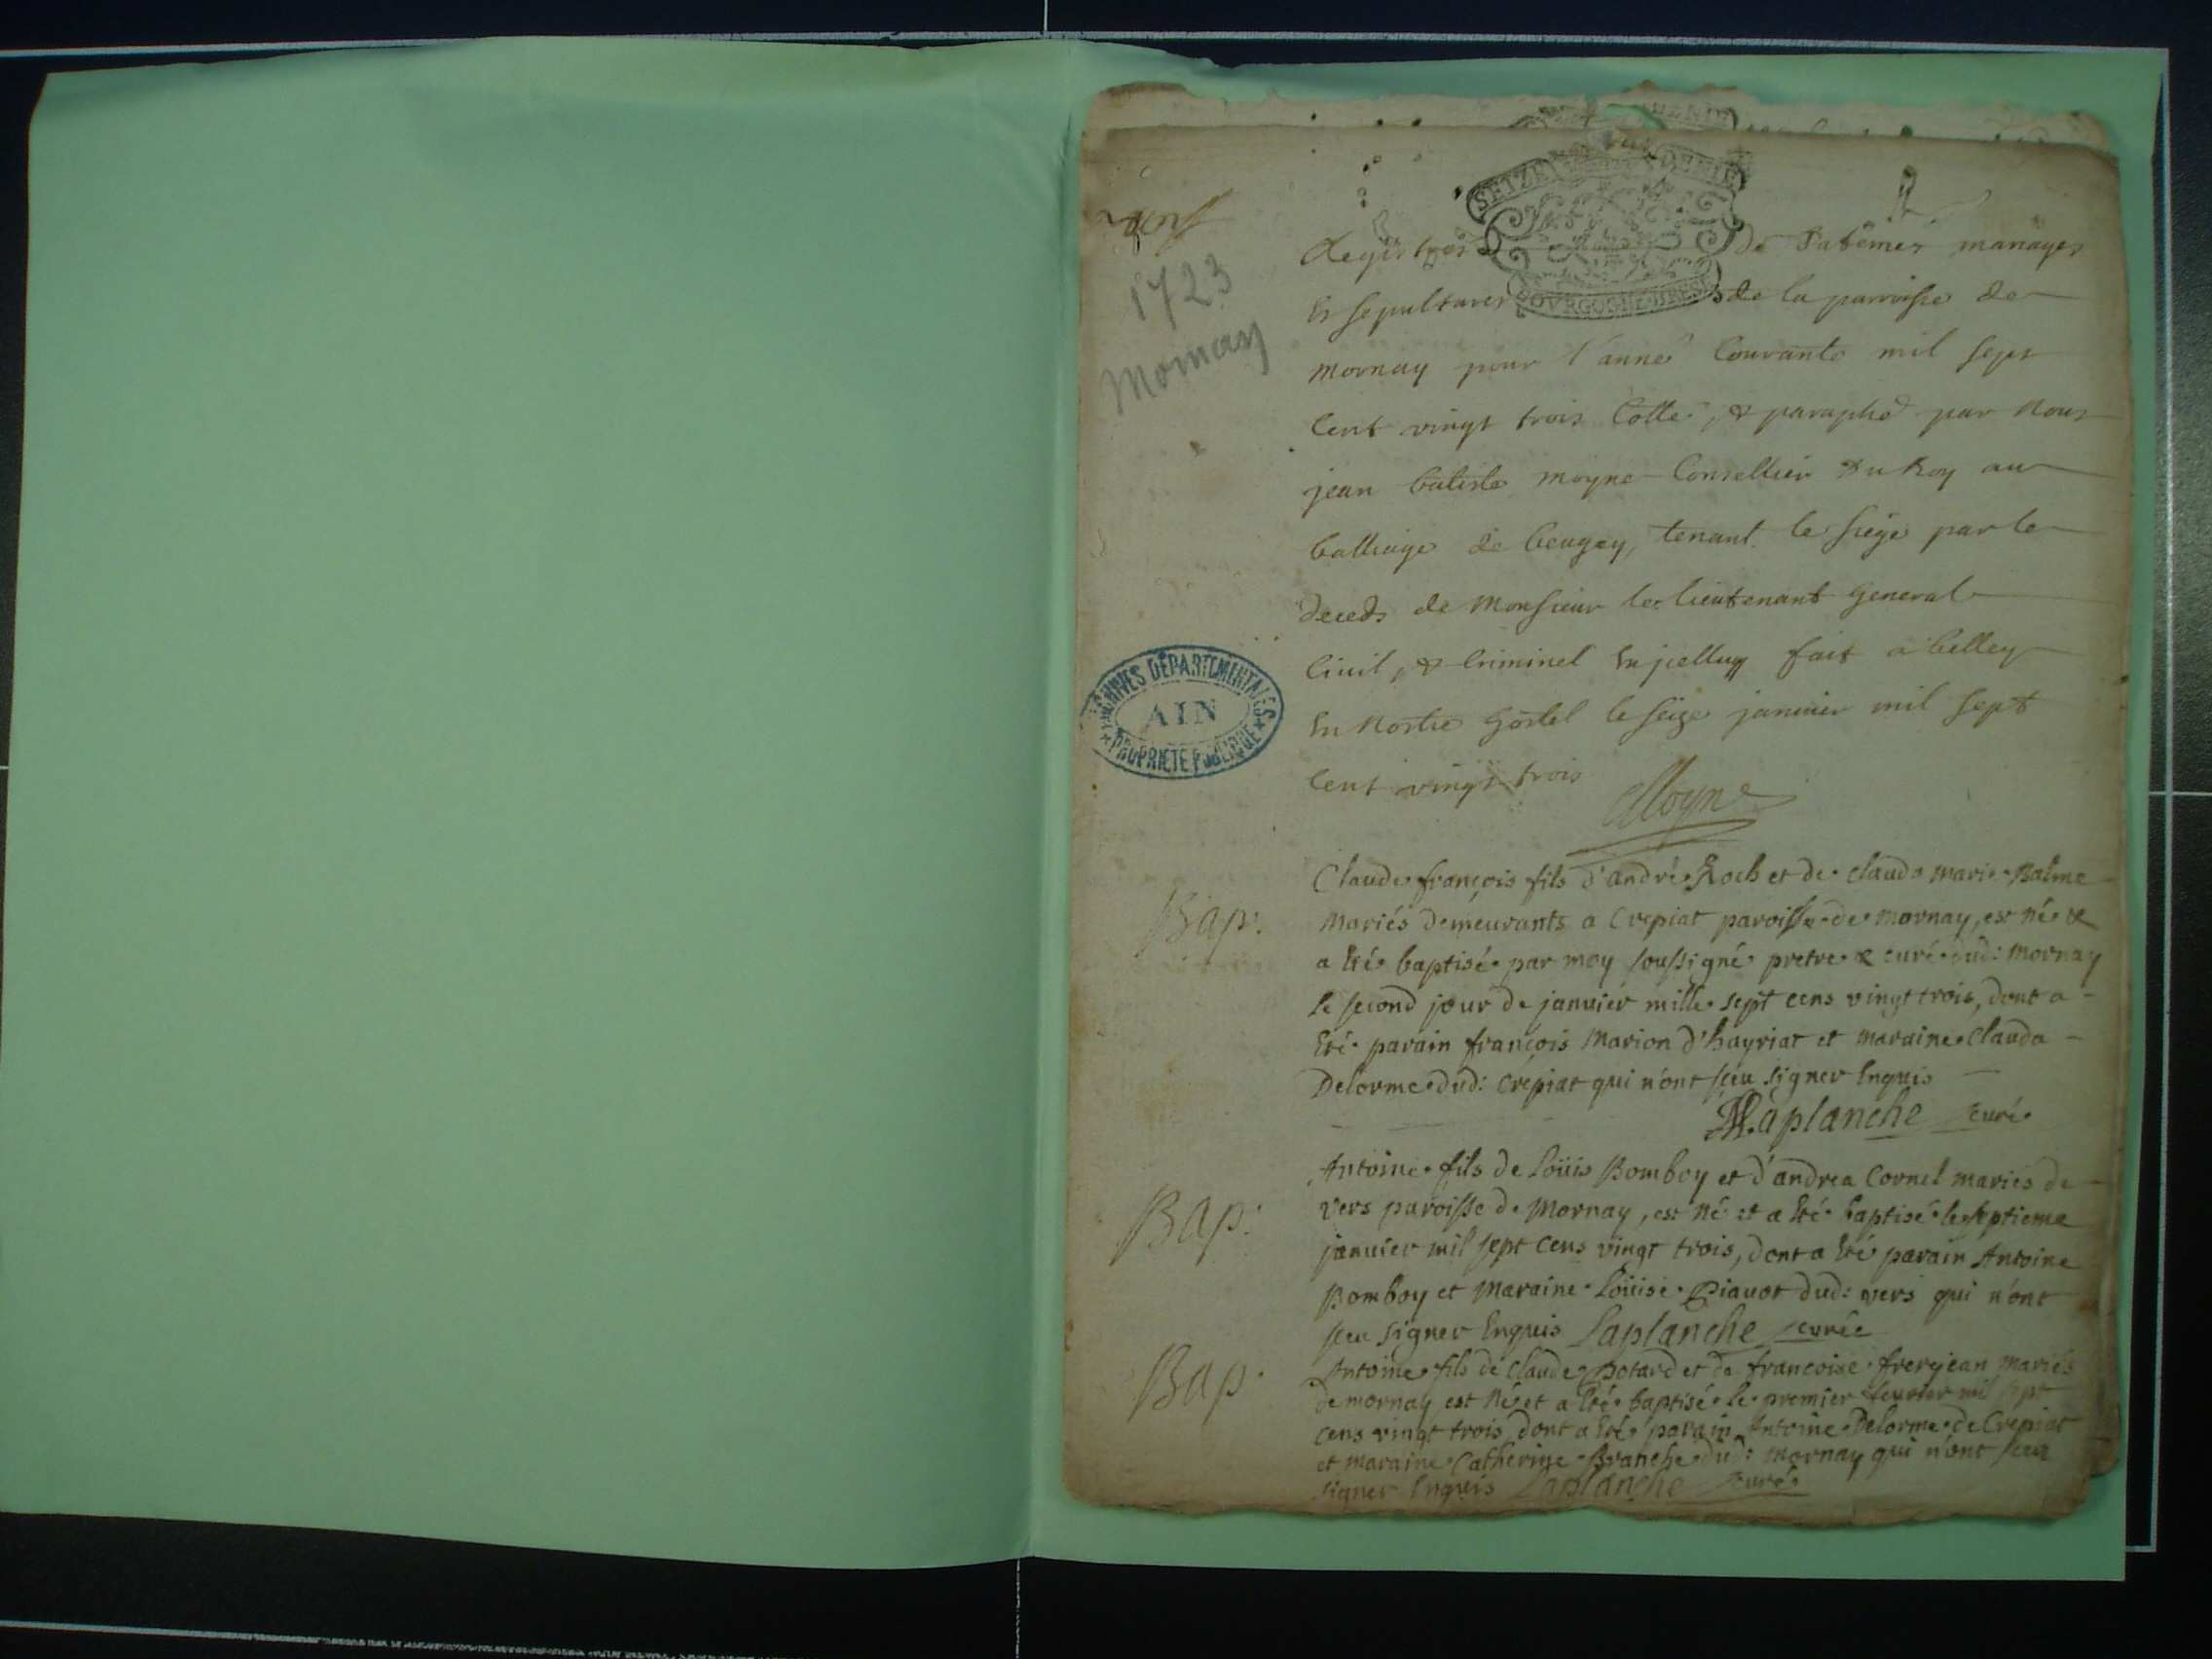 1723
Mornay
SEIZE DENIE
BOVRGOGNE BRESSE
Registres de Batêmes mariages
Et sepultures de la parroisse de
mornay pour l'anneé Courante mil sept
Cent vingt trois Cotté, & paraphé par Nous
jean batiste moyne Conseillier du Roy au
balliage de beugey, tenant le siege par le
deceds de Monsieur le lieutenant General
Civil, & Criminel fait a belley
En Nostre hostel le seize janvier mil sept
Cent vingt trois
Moyne
ARCHIVES DÉPARTEMENTALES
AIN
PROPRIÉTÉ PUBLIQUE
Bap:
Claude françois fils d'andré Roch et de clauda marie Balme
Mariés demeurants a Crepiat paroisse de mornay, est né &
a Eté baptisé par moy soussigné pretre & curé dud: Mornay
le second jour de janvier mille sept cens vingt trois, dont a
Eté parain françois Marion d'hayriat et maraine Clauda
Delorme dud: Crepiat qui n'ont sçeu signer Enquis
Laplanche curé
Bap:
Antoine fils de Loüis Bomboy et d'andrea Cornel mariés de
vers paroisse de Mornay, est né et a Eté baptisé le septieme
janvier mil sept cens vingt trois, dont a Eté parain Antoine
Bomboy et Maraine Loüise Piavot dud: vers qui n'ont
sçeu signer Enquis Laplanche curé
Bap.
Antoine fils de Claude Botard et de francoise frerejean mariés
de mornay est Né et a Eté baptisé le premier fevrier mil sept
cens vingt trois dont a Eté parain Antoine Delorme de Crepiat
et maraine Catherine Branche dud: Mornay qui n'ont sceu
signer Enquis Laplanche curé